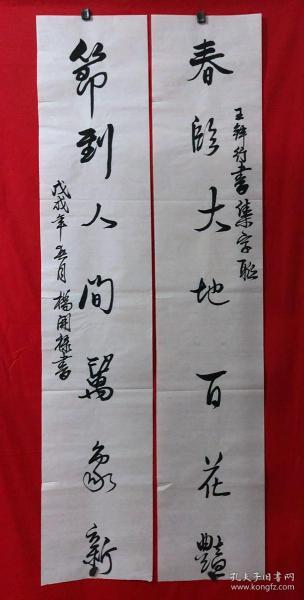 春临大地百花艳
王铎行書集字联
節到人間萬象新
戊戌年五月楊開禄書
孔夫子旧书网